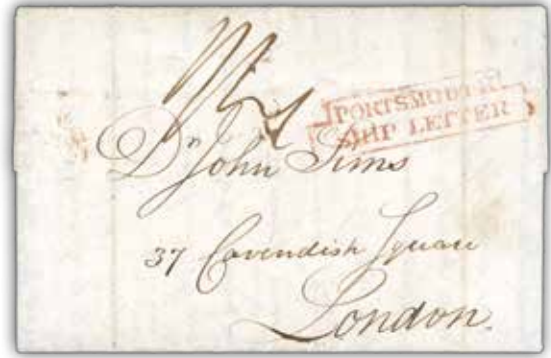 PORTSMOUTH
SHIP LETTER
Dr John Sims
37 Cavendish Square
London.